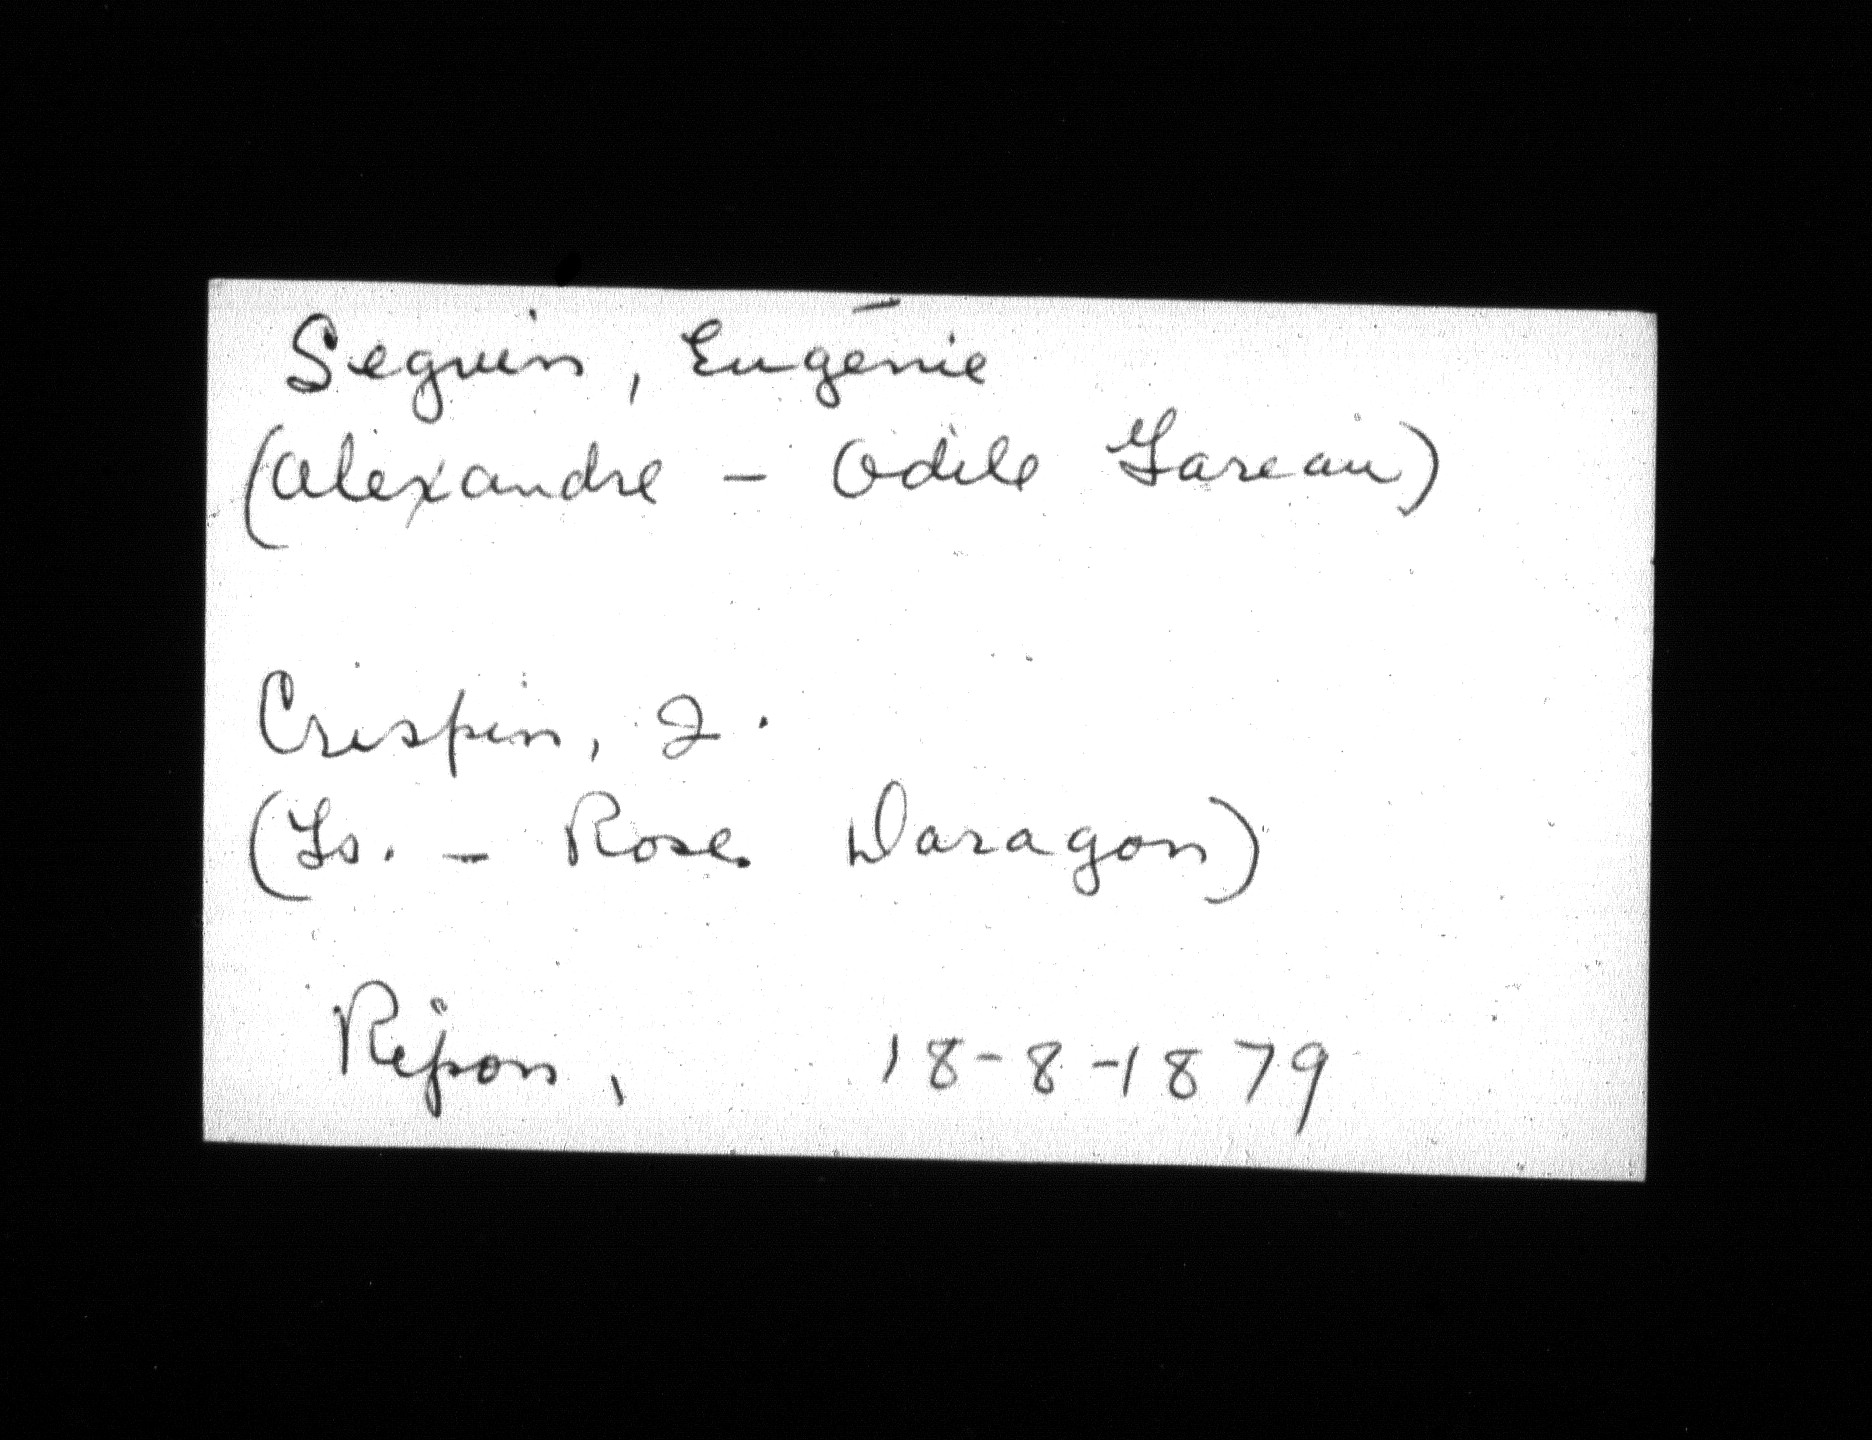 Seguin, Eugénie
(Alexandre - Odile Gareau)
Crispin, J.
(Fs. - Rose Daragon)
Ripon, 18-8-1879